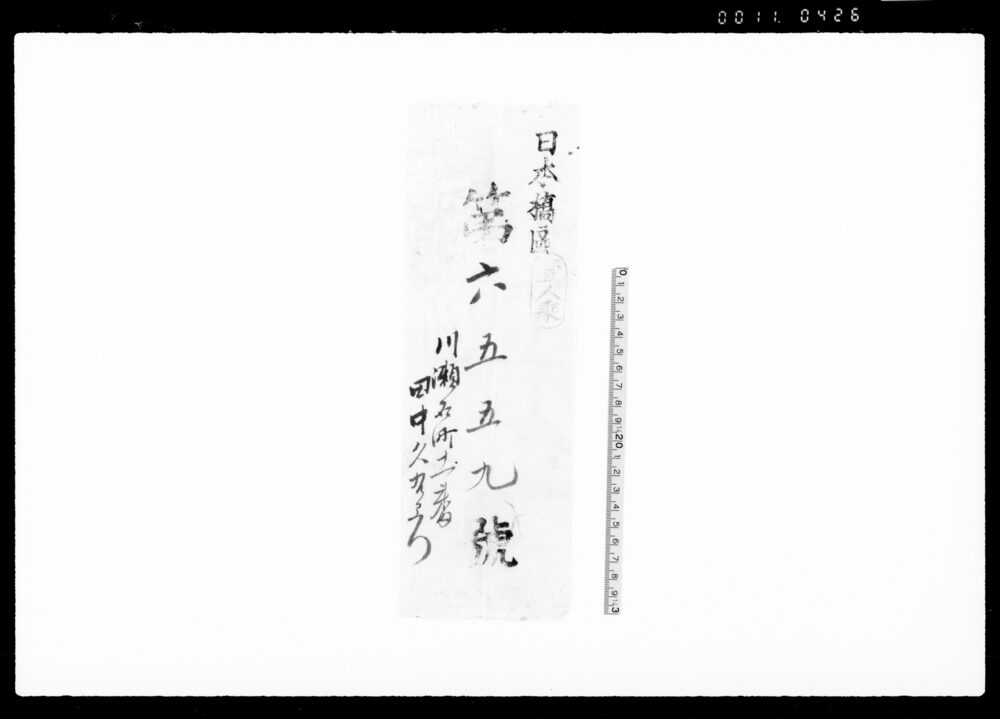 0011. 0426
日本橋區
人乘
第六五五九號
川瀬石町十一番
田中久
0 1 2 3 4 5 6 7 8 9 20 1 2 3 4 5 6 7 8 9 3